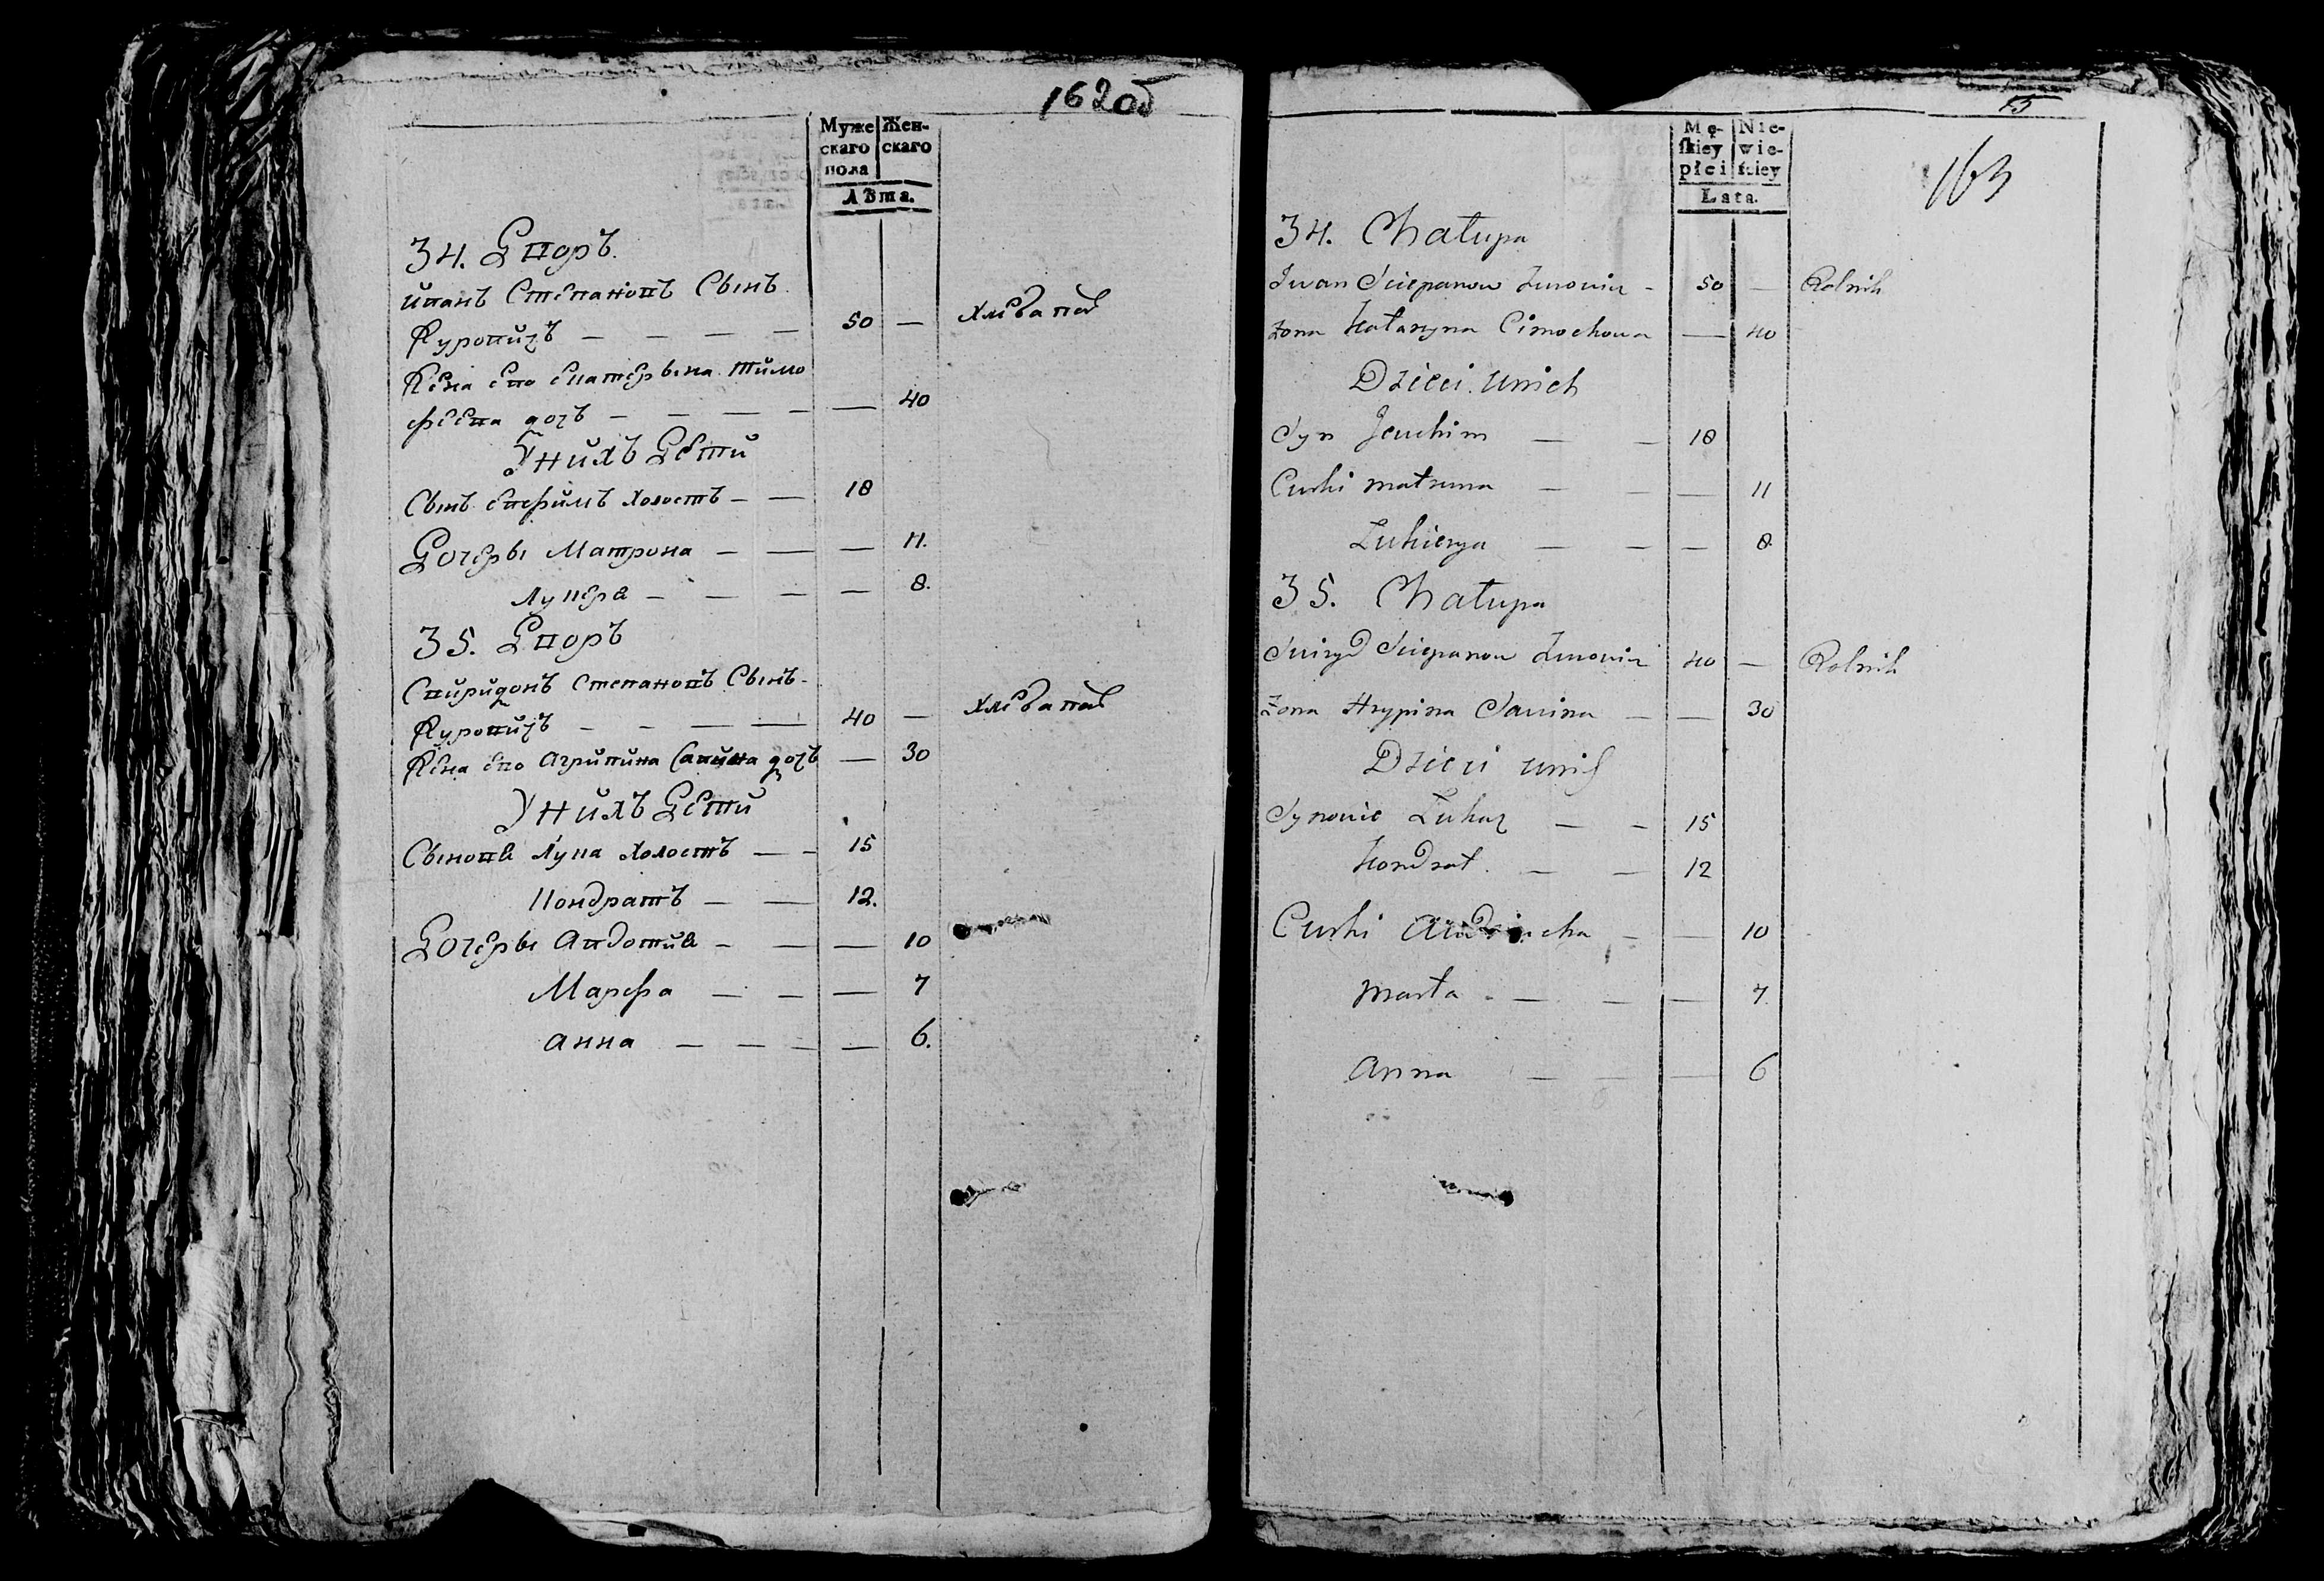 162об
Муже
скаго
пола
Жен-
скаго
Лѣта.
34. Дворъ
Иванъ Степановъ Сынъ
Журовичъ — — — — 50 —
Жена его Екатерына Тимо
феева дочъ — — — — — 40
У нихъ Дети
Сынъ Евфимъ холостъ — — 18
Дочеры Матрона — — — 11.
Лукеря — — — — 8.
35. Дворъ
Спиридонъ Степановъ Сынъ
Журовичъ — — — — 40 —
Жена его Агрипина Савина дочъ — 30
У нихъ Дети
Сыновя Лука холостъ — — 15
Кондратъ — — 12.
Дочеры Авдотия — — — 10
Марфа — — — 7
Анна — — — — 6.
15
163
Mę-
ſkiey
płci
Nie-
wie-
ściey
Lata.
34. Chałupa
Iwan Sciepanow Zurowicz - 50 — Rolnik
Zona Katarzyna Cimochowa — 40
Dzieci unich
Syn Jeuchim — — 18
Curki Matruna — — — 11
Łukierya — — — 8.
35. Chałupa
Swiryd Sciepanow Zurowicz 40 — Rolnik
Zona Hrypina Sawina — — 30
Dzieci unich
Synowie Łukasz — — 15
Kondrat. — — 12
Curki — — 10
Marta - — — — 7.
Anna — — — 6